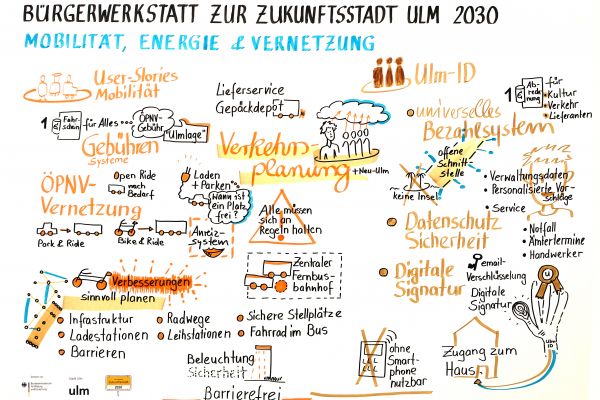 BÜRGERWERKSTATT ZUR ZUKUNFTSSTADT ULM 2030
MOBILITÄT, ENERGIE & VERNETZUNG
User-Stories
Mobilität
1 Fahrschein für Alles
ÖPNV-
Gebühr
"Umlage"
Gebühren
Systeme
Lieferservice
Gepäckdepot
Verkehrs-
planung
+Neu-Ulm
Ulm-ID
universelles
Bezahlsystem
1
Abrechnung
für
Kultur
Verkehr
Lieferanten
offene
Schnitt-
stelle
keine Insel
Verwaltungsdaten
Personalisierte Vor-
schläge
Service
Notfall
Ämtertermine
Handwerker
ÖPNV-
Vernetzung
Open Ride
nach
Bedarf
Park & Ride
Bike & Ride
Laden
+ Parken
Wann ist
ein Platz
frei?
Anreiz-
system
Alle müssen
sich an
Regeln halten
Datenschutz
Sicherheit
Digitale
Signatur
email-
Verschlüsselung
Digitale
Signatur
Ulm-
ID
Zugang zum
Haus
Verbesserungen
sinnvoll planen
Infrastruktur
Ladestationen
Barrieren
Radwege
Leihstationen
Sichere Stellplätze
Fahrrad im Bus
Zentraler
Fernbus-
bahnhof
Beleuchtung
Sicherheit
Barrierefrei
ohne
Smart-
phone
nutzbar
ulm